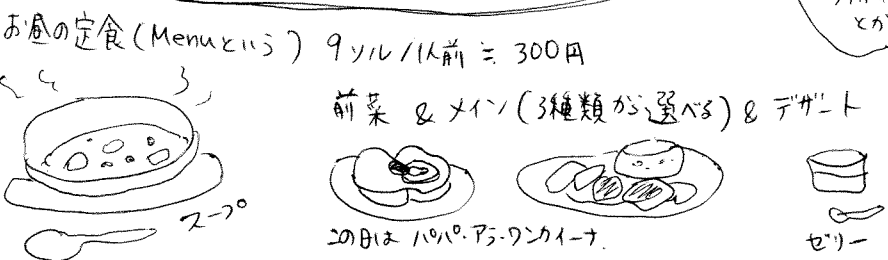 とか
お昼の定食(Menuという) 9ソル/1人前≒300円
前菜 & メイン(3種類から選べる) & デザート
スープ
この日は パパ・アラ・ワンカイーナ.
ゼリー